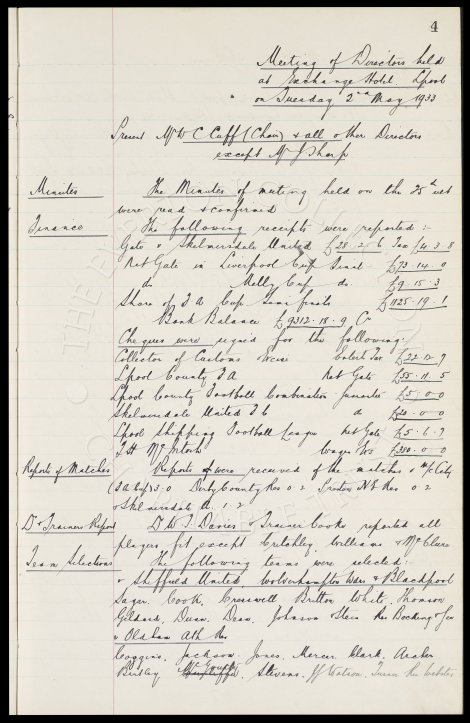 4
Meeting of Directors held
at Exchange Hotel Lpool
on Tuesday 2nd May 1933
Present Mr W C Cuff (Chair) & all other Directors
except Mr J Sharp
Minutes The Minutes of meeting held on the 25th ult
were read & confirmed
Finance The following receipts were reported :-
Gate v Skelmersdale United £28.2.6 Tax £4.3.8
Net Gate in Liverpool Cup Final £73.14.0
do Mally Cup do. £9.15.3
Share of F A Cup Semi finals £1125.19.1
Bank Balance £9312.18.9 Cr
Cheques were signed for the following:
Collector of Customs & Excise Entert Tax £22.12.9
Lpool County F A Net Gate £55.11.5
Lpool County Football Combination Guarantee £5.0.0
Skelmersdale United F C do £20.0.0
Lpool Shipping Football League Net Gate £5.6.9
T H McIntosh Wages &c £350.0.0
Reports of Matches Reports were received of the matches v M/c City
(F A Cup) 3.0 Derby County Res 0 2 Preston N E Res 0 2
v Skelmersdale U. 1 2
Dr & Trainers Report Dr W J Davies & Trainer Cooke reported all
players fit except Critchley, Williams & McClure
Team Selections The following teams were selected:-
v Sheffield United, Wolverhampton Wdrs & Blackpool
Sagar. Cook, Cresswell Britton White. Thomson
Geldard, Dunn. Dean. Johnson & Stein Res Bocking &
v Oldham Ath Res
Coggins. Jackson. Jones. Mercer Clark. Archer
Birtley Stevens. Watson. Turner Res Webster